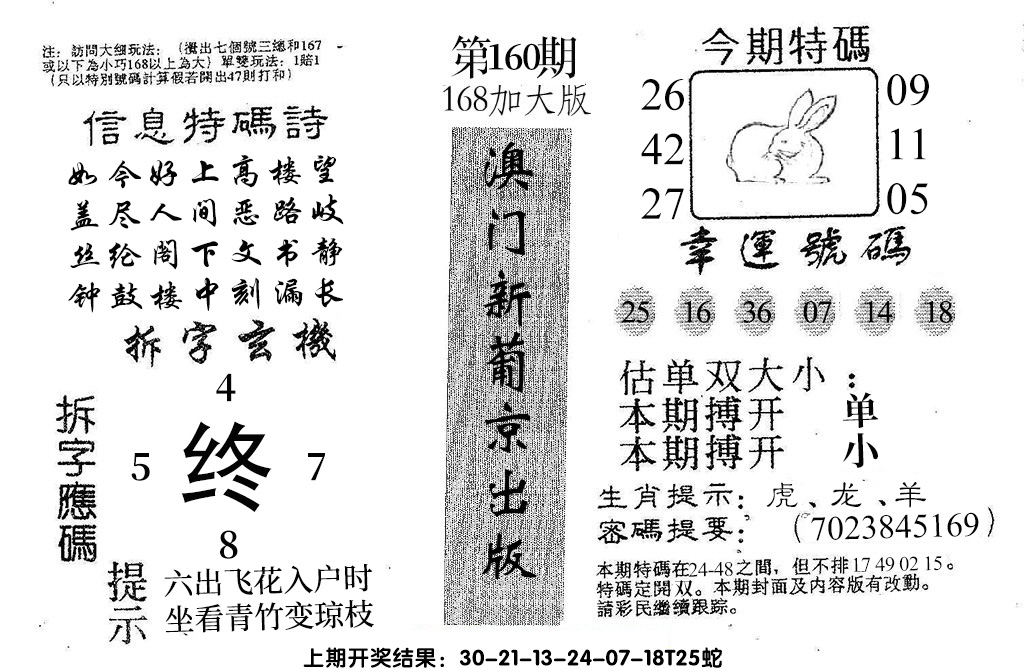 注：訪問大細玩法：（攪出七個號三總和167
或以下為小巧168以上為大）單雙玩法：1賠1
（只以特別號碼計算假若開出47則打和）
信息特碼詩
如今好上高楼望
盖尽人间恶路岐
丝纶阁下文书静
钟鼓楼中刻漏长
拆字玄機
拆字應碼
4
5 终 7
8
提示
六出飞花入户时
坐看青竹变琼枝
第160期
168加大版
澳门新葡京出版
今期特碼
26 09
42 11
27 05
幸運號碼
25 16 36 07 14 18
估单双大小：
本期搏开 单
本期搏开 小
生肖提示：虎、龙、羊
密碼提要：（7023845169）
本期特碼在24-48之間，但不排17 49 02 15。
特碼定開双。本期封面及内容版有改動。
請彩民繼續跟踪。
上期开奖结果：30-21-13-24-07-18T25蛇